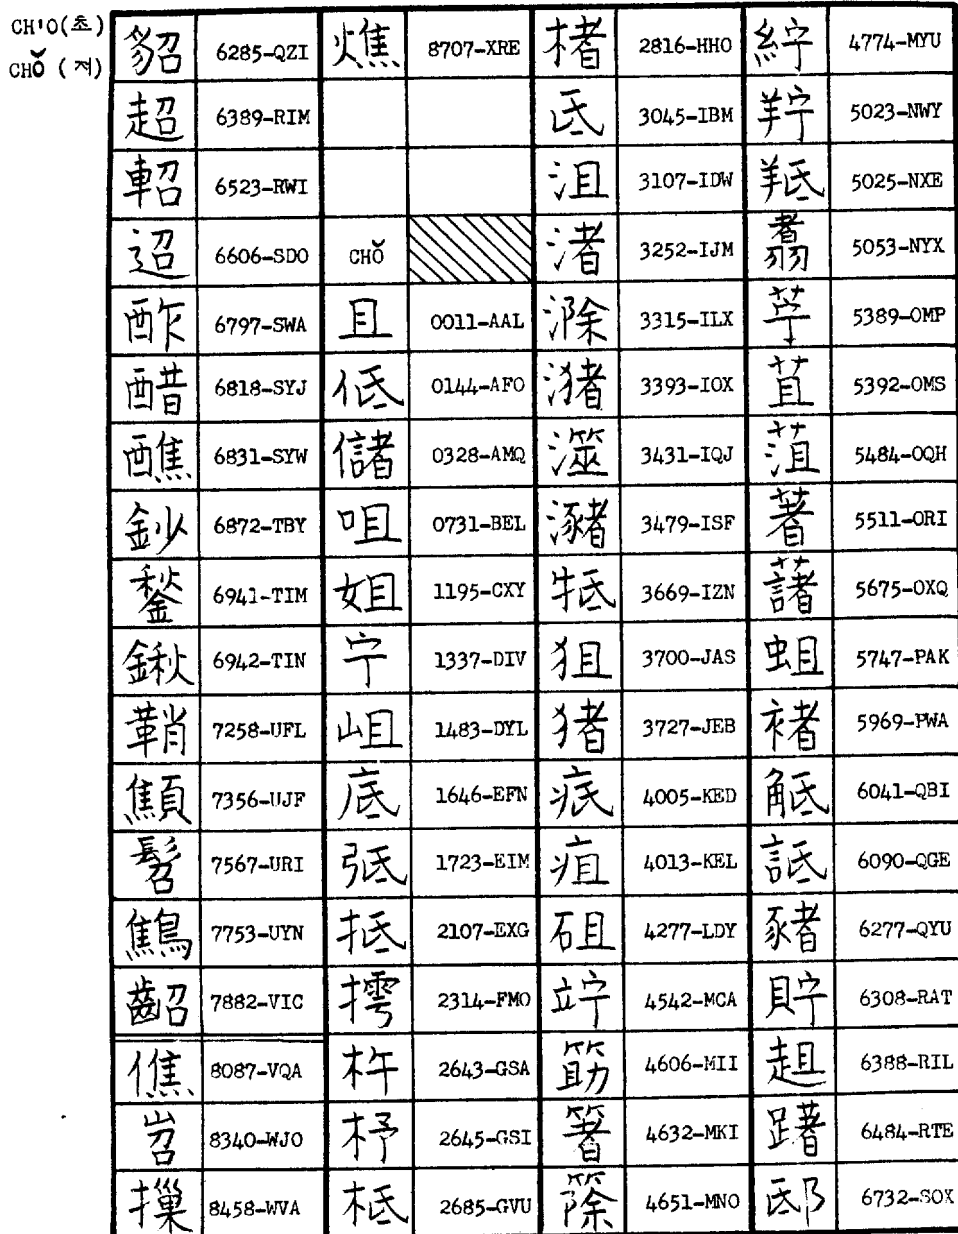 CH'O(초)
CHŎ (저)
貂 6285-QZI 燋 8707-XRE 楮 2816-HHO 紵 4774-MYU
超 6389-RIM 氐 3045-IBM 羜 5023-NWY
軺 6523-RWI 沮 3107-IDW 羝 5025-NXE
迢 6606-SDO CHŎ 渚 3252-IJM 翥 5053-NYX
酢 6797-SWA 且 0011-AAL 滁 3315-ILX 苧 5389-OMP
醋 6818-SYJ 低 0144-AFO 潴 3393-IOX 苴 5392-OMS
醮 6831-SYW 儲 0328-AMQ 澨 3431-IQJ 菹 5484-OQH
鈔 6872-TBY 咀 0731-BEL 瀦 3479-ISF 著 5511-ORI
鍫 6941-TIM 姐 1195-CXY 牴 3669-IZN 藷 5675-OXQ
鍬 6942-TIN 宁 1337-DIV 狙 3700-JAS 蛆 5747-PAK
鞘 7258-UFL 岨 1483-DYL 猪 3727-JEB 褚 5969-PWA
顦 7356-UJF 底 1646-EFN 疷 4005-KED 觝 6041-QBI
髫 7567-URI 弤 1723-EIM 疽 4013-KEL 詆 6090-QGE
鷦 7753-UYN 抵 2107-EXG 砠 4277-LDY 豬 6277-QYU
齠 7882-VIC 摴 2314-FMO 竚 4542-MCA 貯 6308-RAT
僬 8087-VQA 杵 2643-GSA 筯 4606-MII 趄 6388-RIL
岧 8340-WJO 杼 2645-GSI 箸 4632-MKI 躇 6484-RTE
摷 8458-WVA 柢 2685-GVU 篨 4651-MNO 邸 6732-SOX